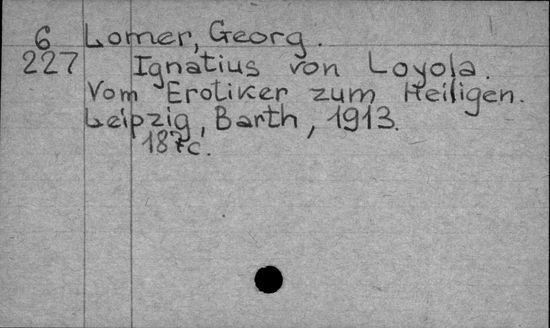 6 Lomer, Georg.
227 Ignatius von Loyola.
Vom Erotiker zum Heiligen.
Leipzig, Barth, 1913.
187c.